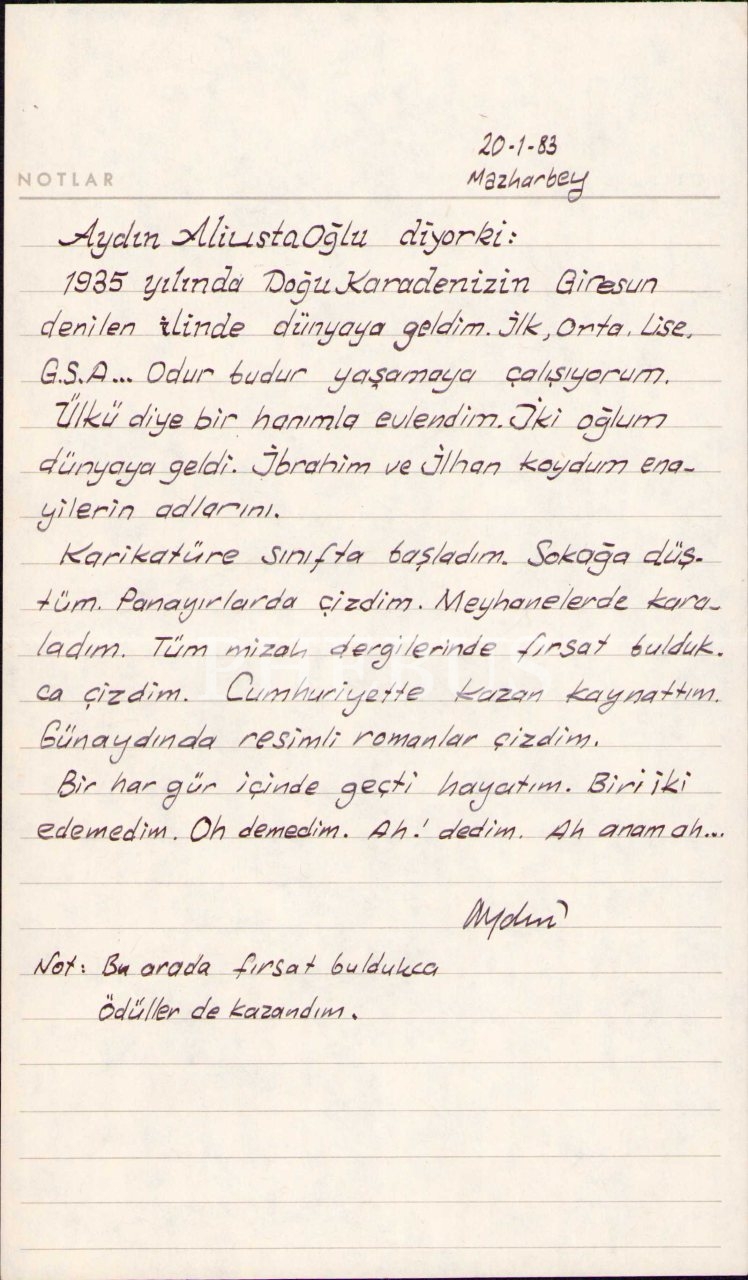 20-1-83
NOTLAR
Mazharbey
Aydın AliustaOğlu diyorki:
1935 yılında Doğu Karadenizin Giresun
denilen ilinde dünyaya geldim. İlk, Orta, Lise,
G.S.A... Odur budur yaşamaya çalışıyorum.
Ülkü diye bir hanımla evlendim. İki oğlum
dünyaya geldi. İbrahim ve İlhan koydum ena-
yilerin adlarını.
Karikatüre sınıfta başladım. Sokağa düş-
tüm. Panayırlarda çizdim. Meyhanelerde kara-
ladım. Tüm mizah dergilerinde fırsat bulduk-
ca çizdim. Cumhuriyette kazan kaynattım.
Günaydında resimli romanlar çizdim.
Bir har gür içinde geçti hayatım. Biri iki
edemedim. Oh demedim. Ah! dedim. Ah anam ah...
Aydın
Not: Bu arada fırsat buldukca
Ödüller de kazandım.